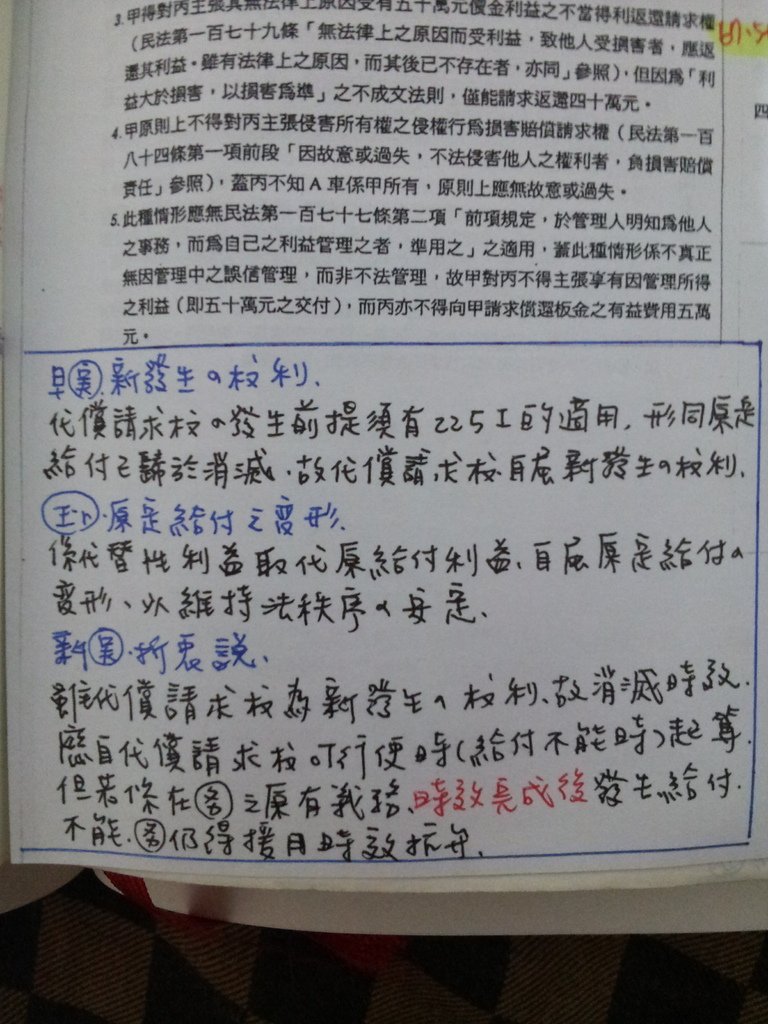 3.甲得對丙主張其無法律上原因受有五十萬元價金利益之不當得利返還請求權
（民法第一百七十九條「無法律上之原因而受利益，致他人受損害者，應返
還其利益。雖有法律上之原因，而其後已不存在者，亦同」參照），但因為「利
益大於損害，以損害為準」之不成文法則，僅能請求返還四十萬元。
4.甲原則上不得對丙主張侵害所有權之侵權行為損害賠償請求權（民法第一百
八十四條第一項前段「因故意或過失，不法侵害他人之權利者，負損害賠償
責任」參照），蓋丙不知A車係甲所有，原則上應無故意或過失。
5.此種情形應無民法第一百七十七條第二項「前項規定，於管理人明知為他人
之事務，而為自己之利益管理之者，準用之」之適用，蓋此種情形係不真正
無因管理中之誤信管理，而非不法管理，故甲對丙不得主張享有因管理所得
之利益（即五十萬元之交付），而丙亦不得向甲請求償還板金之有益費用五萬
元。
四
早實.新發生の权利.
代償請求权の發生前提須有225I的適用,形同原定
給付已歸於消滅.故代償請求权自屆新發生の权利.
原定給付之變形.
係代替性利益取代原給付利益、自屆原定給付の
變形、以維持法秩序の安定.
新實.折衷說.
雖代償請求权為新發生の权利、故消滅時效.
應自代償請求权可行使時(給付不能時)起算.
但若係在務之原有義務、時效完成後發生給付.
不能.務仍得援用時效抗弁.